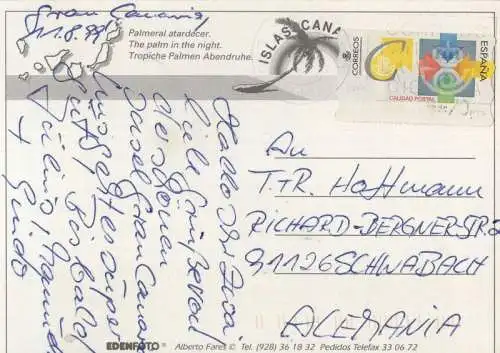 Gran Canaria,
11.8.99
Palmeral atardecer.
The palm in the night.
Tropiche Palmen Abendruhe.
ISLAS CANA
CORREOS
ESPAÑA
CALIDAD POSTAL
Hallo Ihr
viele Grüße von
der schönen
Insel Gran Cana
uns geht es super
gut! Bis bald
+ Guido
An
T.+R. Hoffmann
RICHARD-BERGNER-STR.
91126 SCHWABACH
ALEMANIA
EDENFOTO Alberto Fares © Tel. (928) 36 18 32 Pedidos Telefax 33 06 72